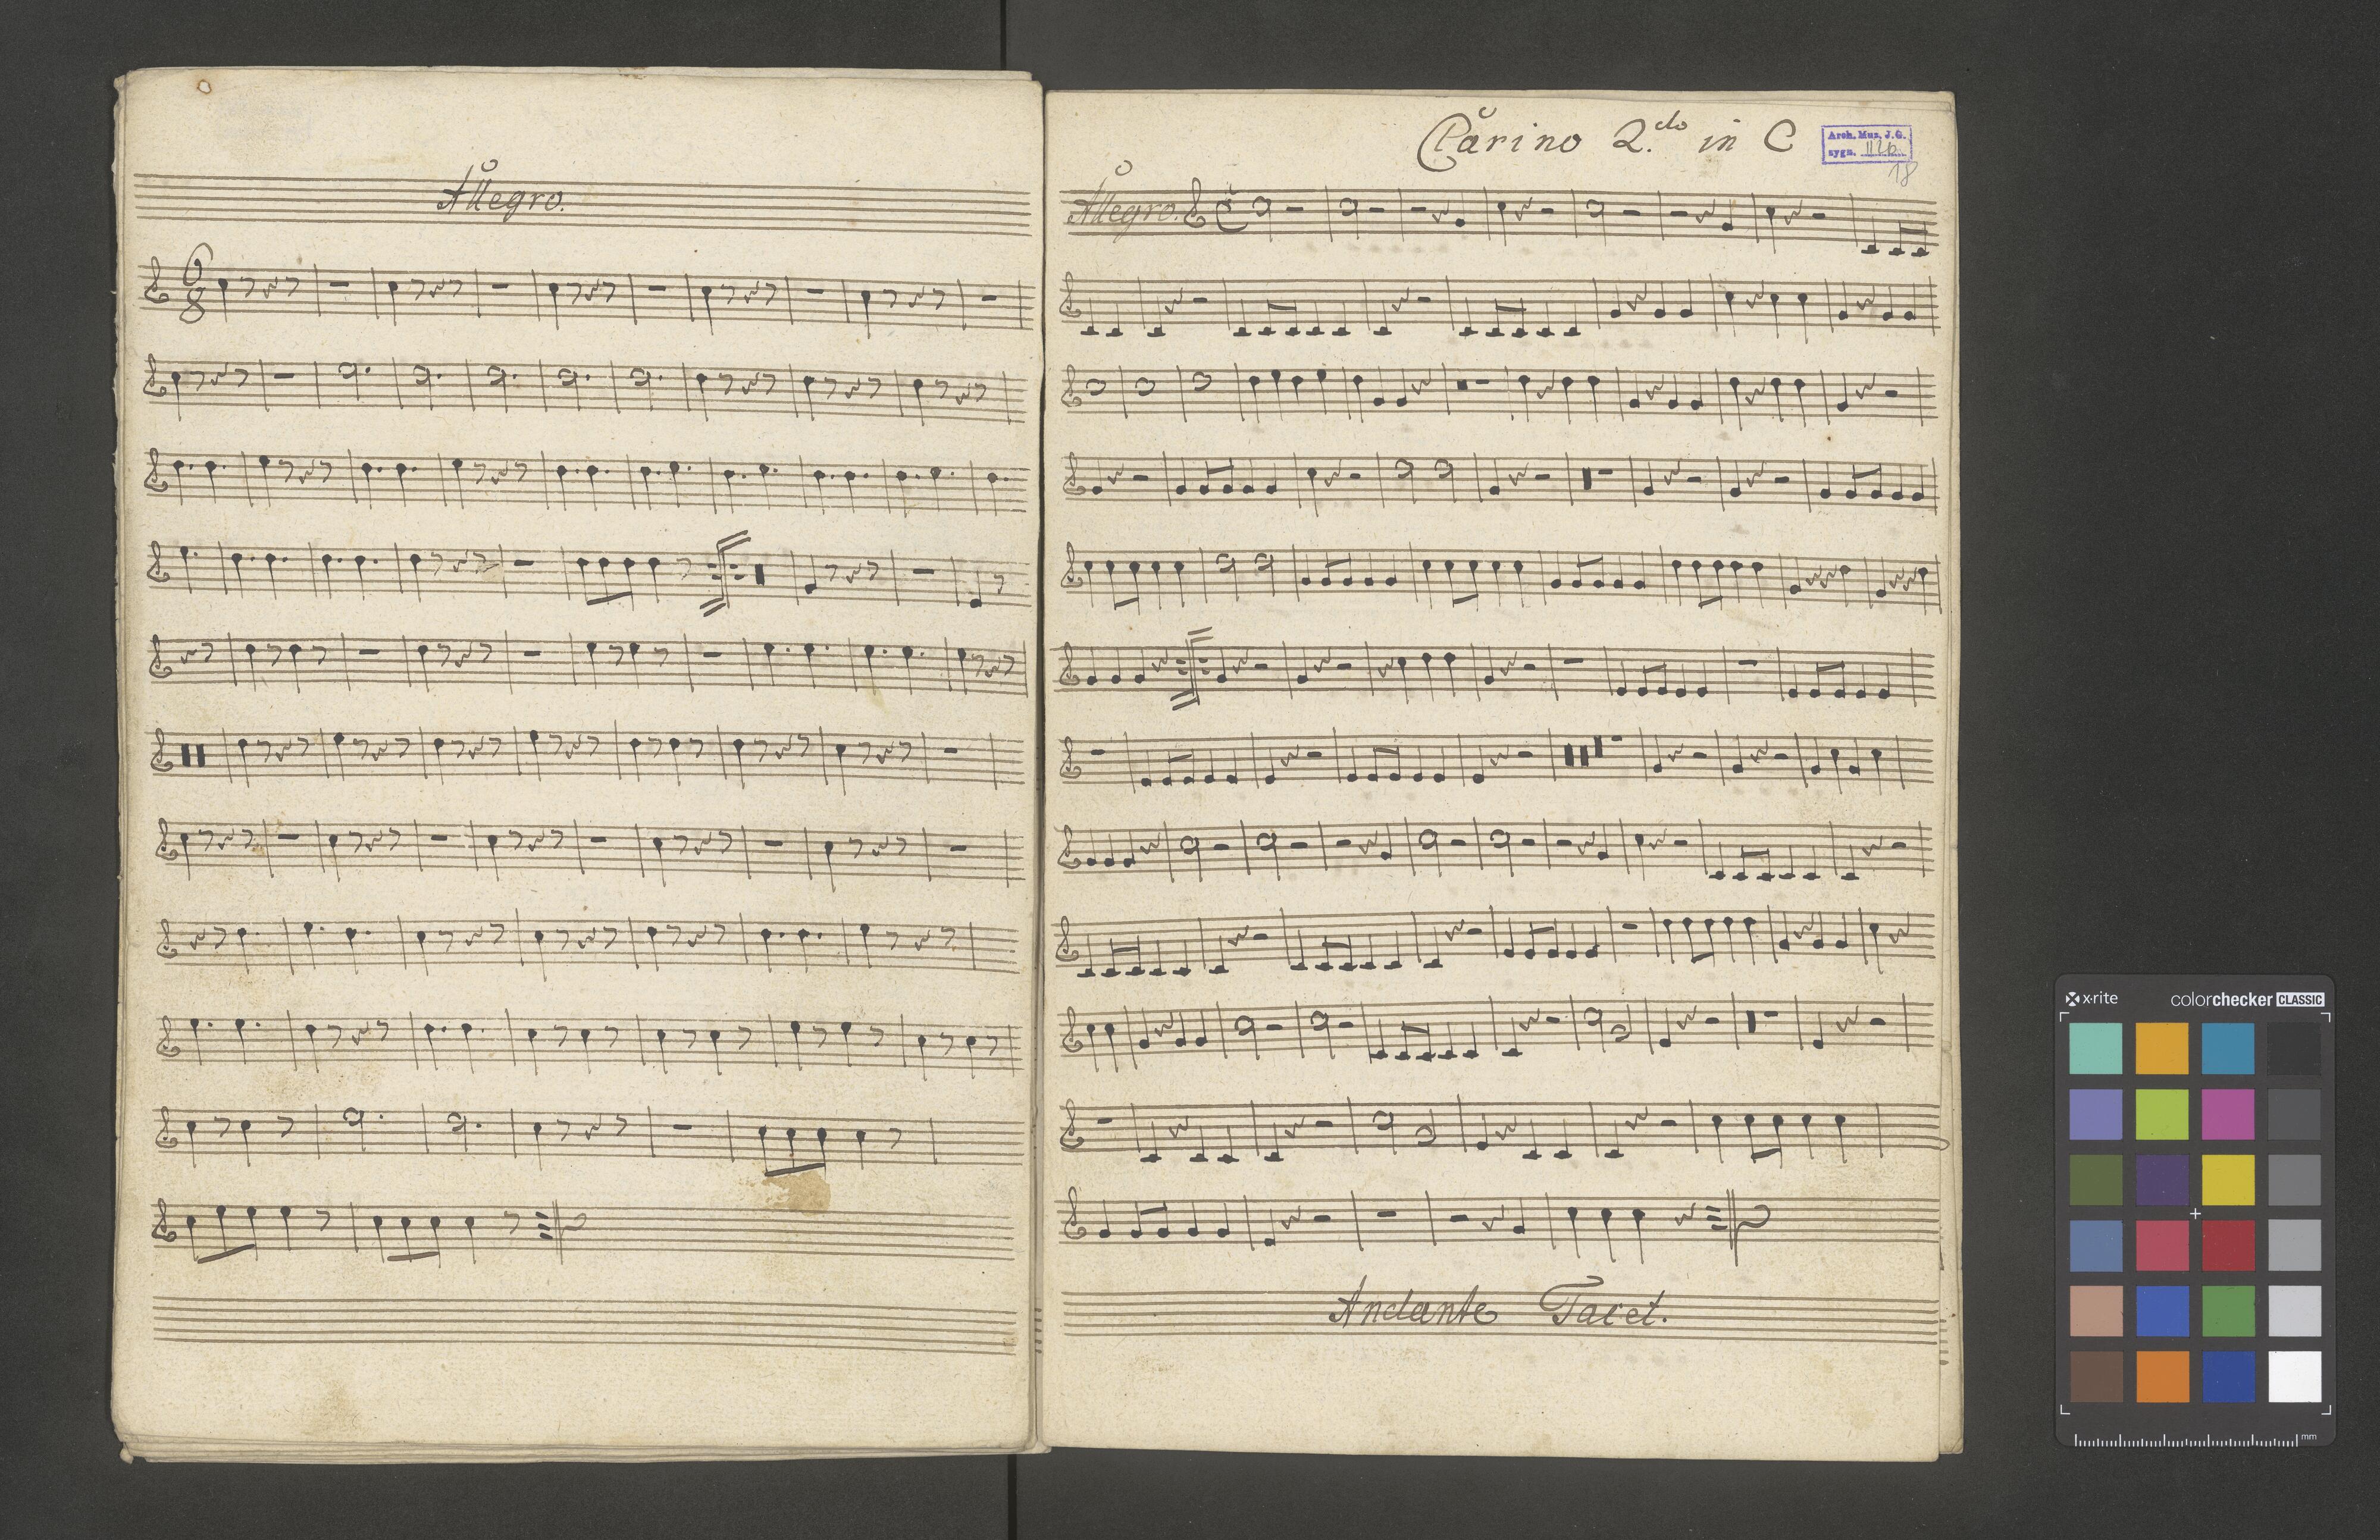 Allegro.
6
8
Clarino 2.do in C
Arch. Muz. J.G.
sygn. II 26.
18
Allegro. C
Andante Tacet.
x·rite colorchecker CLASSIC
mm